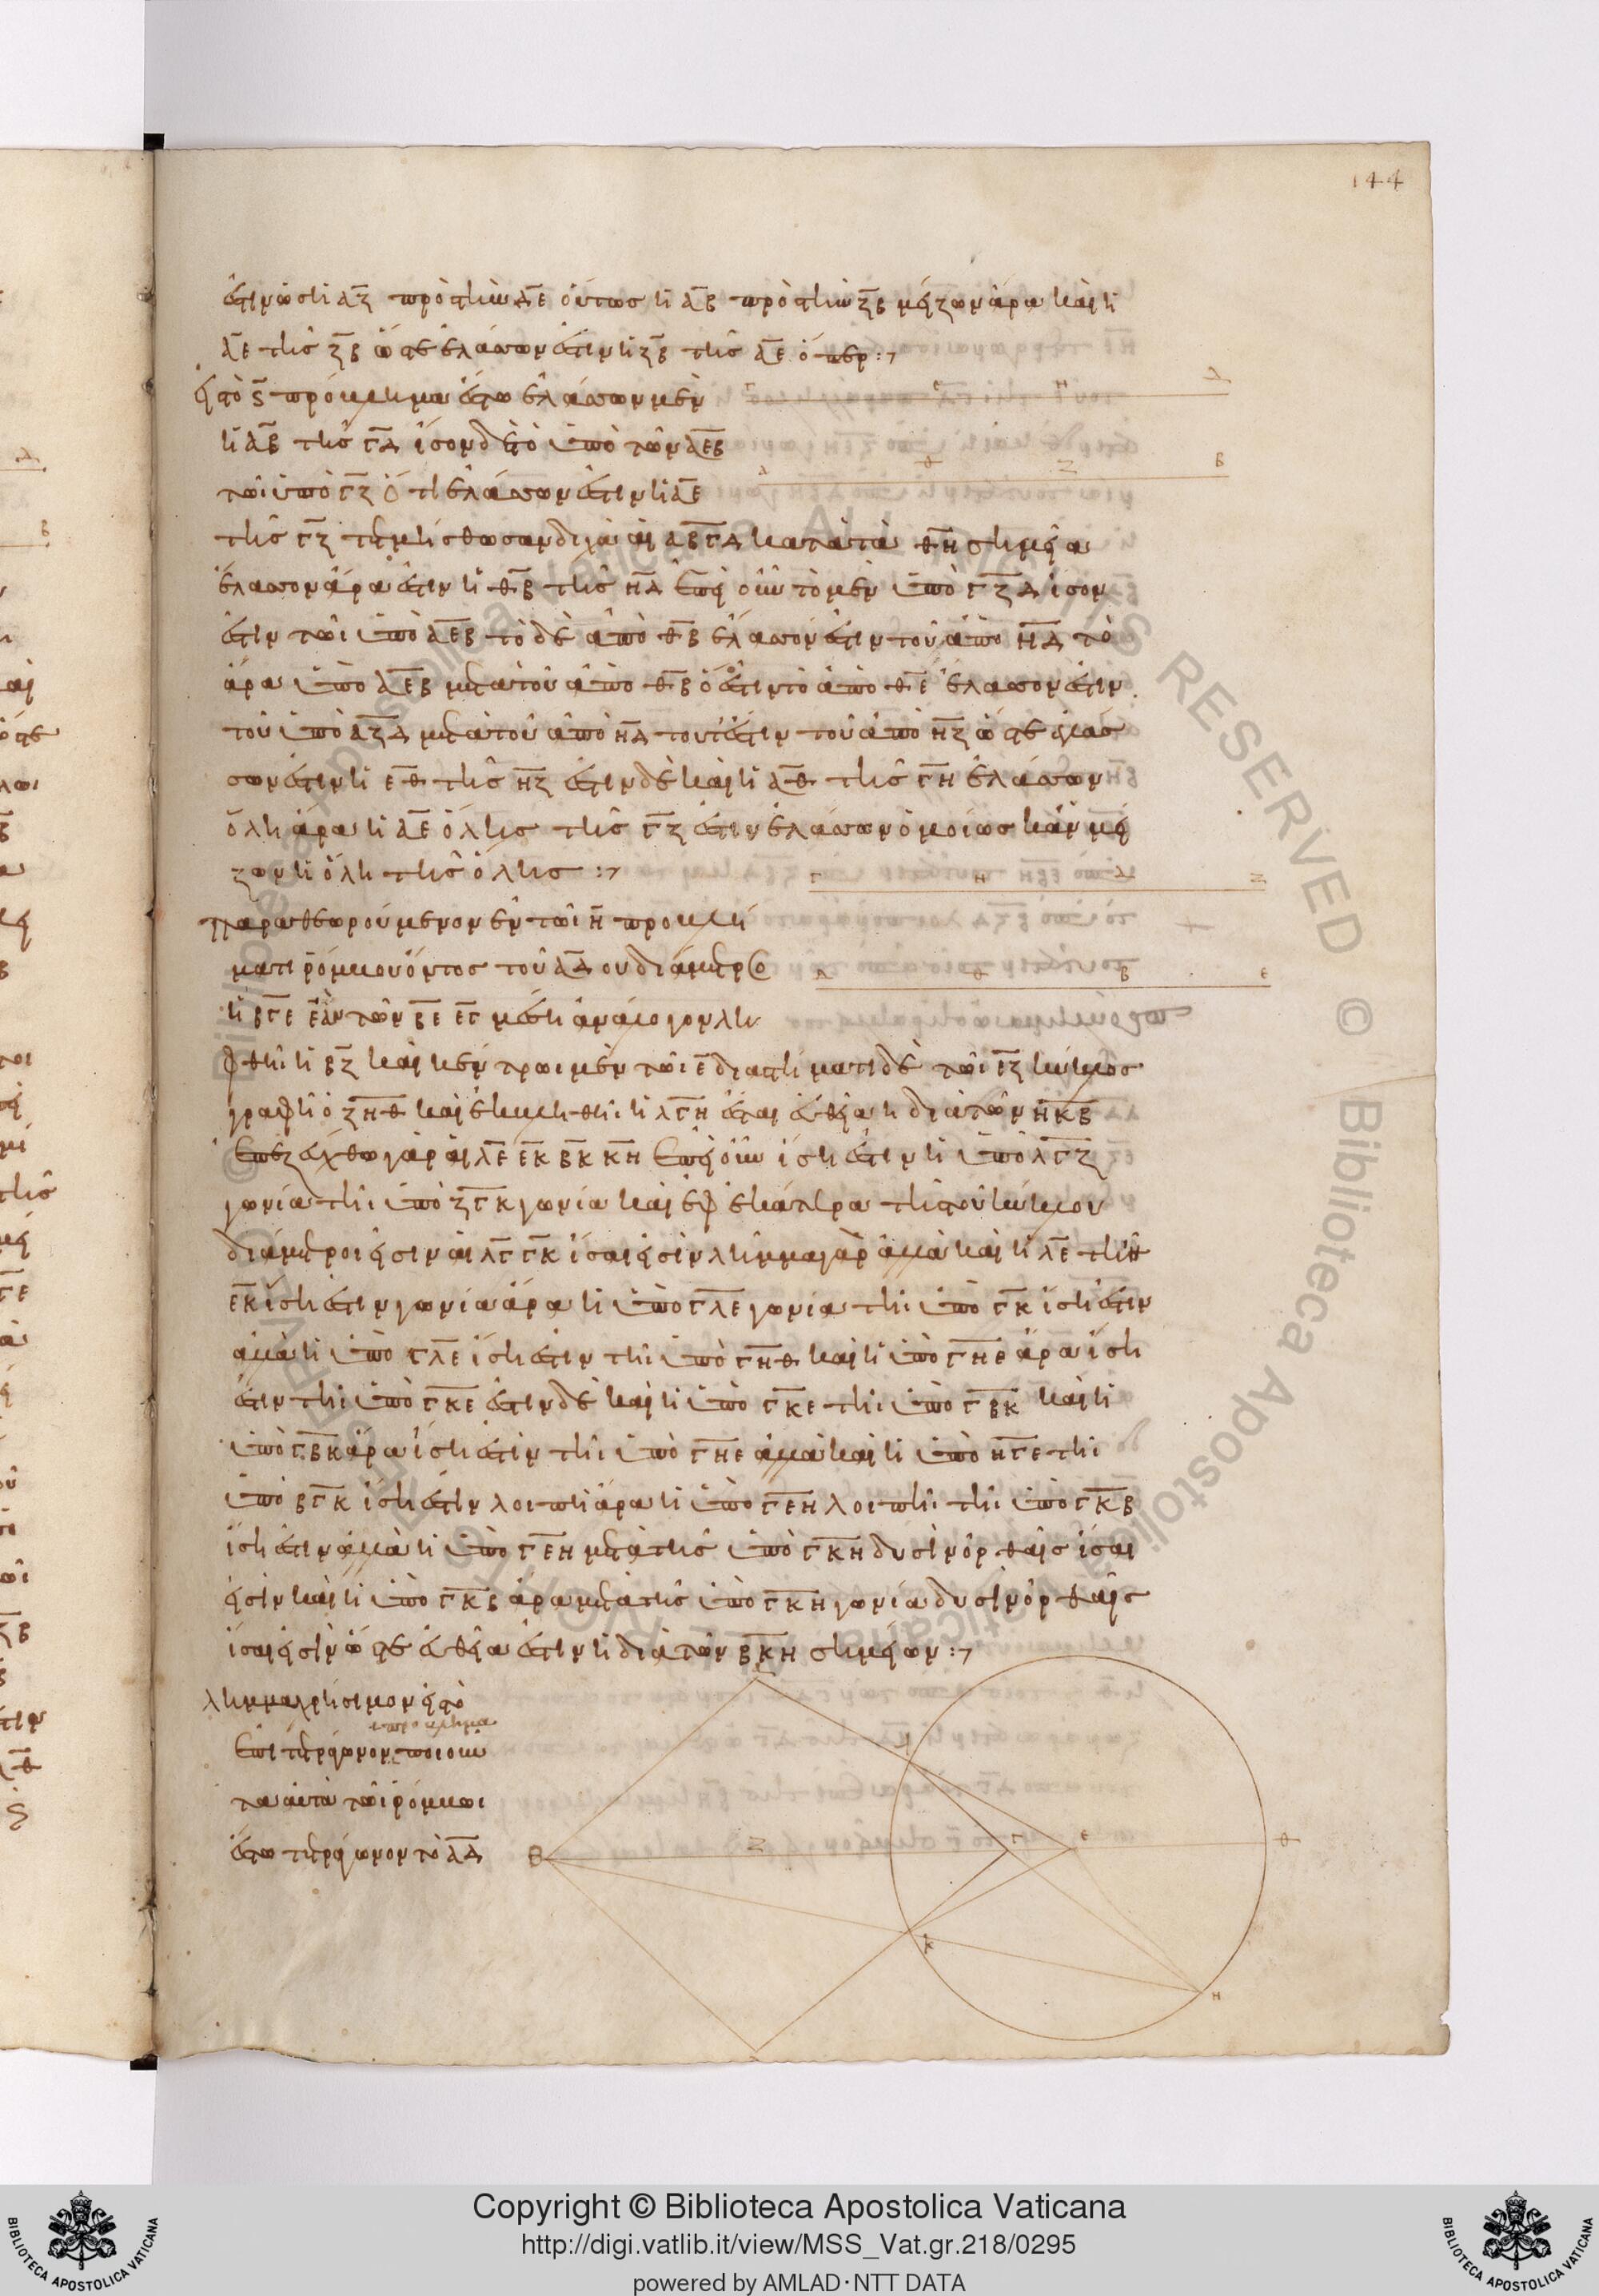 144
ἐστιν ὡς ἡ ΑΖ πρὸς τὴν ΔΕ οὕτως ἡ ΑΒ πρὸς τὴν ΖΒ μείζων ἄρα καὶ ἡ
ΔΕ τῆς ΖΒ ὥστε ἐλάσσων ἐστὶν ἡ ΖΒ τῆς ΔΕ ὅπερ :
εἰς τὸ Ϛ πρόβλημα ἔστω ἐλάσσων μὲν
ἡ ΑΒ τῆς ΓΔ ἴσον δὲ τὸ ὑπὸ τῶν ΑΕΒ
τῶι ὑπὸ ΓΖ ὅτι ἐλάσσων ἐστὶν ἡ ΑΕ
τῆς ΓΖ τετμήσθωσαν δίχα αἱ ΑΒ ΓΔ κατὰ τὰ ΘΗ σημεῖα
ἔλασσον ἄρα ἐστὶν ἡ ΘΒ τῆς ΗΔ ἐπεὶ οὖν τὸ μὲν ὑπὸ ΓΖΔ ἴσον
ἐστὶν τῶι ὑπὸ ΑΕΒ τὸ δὲ ἀπὸ ΘΒ ἔλασσόν ἐστιν τοῦ ἀπὸ ΗΔ τὸ
ἄρα ὑπὸ ΑΕΒ μετὰ τοῦ ἀπὸ ΘΒ ὅ ἐστιν τὸ ἀπὸ ΘΕ ἔλασσον ἐστιν
τοῦ ὑπὸ ΔΖΔ μετὰ τοῦ ἀπὸ ΗΔ τουτέστιν τοῦ ἀπὸ ΗΖ ὥστε ἐλάσ
σων ἐστὶν ἡ ΕΘ τῆς ΗΖ ἔστιν δὲ καὶ ἡ ΑΘ τῆς ΓΗ ἐλάσσων
ὅλη ἄρα ἡ ΑΕ ὅλης τῆς ΓΖ ἐστὶν ἐλάσσων ὁμοίως κἂν μεί
ζων ἡ ὅλη τῆς ὅλης :
παραθεωρούμενον ἐν τῶι Η προβλή
ματι ῥόμβου ὄντος τοῦ ΑΔ οὗ διάμετρος
ἡ ΒΓΕ ἐὰν τῶν ΒΕ ΕΓ μέση ἀνάλογον λη
φθῆι ἡ ΒΖ καὶ κέντρωι μὲν τῶι Ε διαστήματι δὲ τῶι ΕΖ κύκλος
γραφῆι ὁ ΖΗΘ καὶ ἐκβληθῆι ἡ ΛΓΗ ἔσται εὐθεῖα ἡ διὰ τῶν ΗΚΒ
ἐπεζεύχθω γὰρ αἱ ΛΕ ΕΚ ΒΚ ΚΗ ἐπεὶ οὖν ἴση ἐστὶν ἡ ὑπὸ ΛΓΖ
γωνία τῆι ὑπὸ ΖΓΚ γωνία καὶ ἐφ ἑκάτερα τῆς τοῦ κύκλου
διάμετροι εἰσιν αἱ ΛΓ ΓΚ ἴσαι εἰσὶν λῆμμα γὰρ ἀλλὰ καὶ ἡ ΛΕ τῆι
ΕΚ ἴση ἐστὶν γωνία ἄρα ἡ ὑπὸ ΓΛΕ γωνία τῆι ὑπὸ ΓΚ ἴση ἐστὶν
ἀλλὰ ἡ ὑπὸ ΓΛΕ ἴση ἐστὶν τῆι ὑπὸ ΓΗΘ καὶ ἡ ὑπὸ ΓΗΕ ἄρα ἴση
ἐστὶν τῆι ὑπὸ ΓΚΕ ἔστιν δὲ καὶ ἡ ὑπὸ ΓΚΕ τῆι ὑπὸ ΓΒΚ καὶ ἡ
ὑπὸ ΓΒΚ ἄρα ἴση ἐστὶν τῆι ὑπὸ ΓΗΕ ἀλλὰ καὶ ἡ ὑπὸ ΗΓΕ τῆι
ὑπὸ ΒΓΚ ἴση ἐστὶν λοιπὴ ἄρα ἡ ὑπὸ ΓΕΗ λοιπῆι τῆι ὑπὸ ΓΚΒ
ἴση ἐστὶν ἀλλὰ ἡ ὑπὸ ΓΕΗ μετὰ τῆς ὑπὸ ΓΚΗ δυσὶν ὀρθαῖς ἴσαι
εἰσὶν καὶ ἡ ὑπὸ ΓΚΒ ἄρα μετὰ τῆς ὑπὸ ΓΚΗ γωνία δυσὶν ὀρθαῖς
ἴσαι εἰσὶν ὥστε εὐθεῖα ἐστὶν ἡ διὰ τῶν ΒΚΗ σημείων :
λῆμμα χρήσιμον εἰς τὸ
πρόβλημα
ἐπὶ τετραγώνων ποιούν
τα αὐτὰ τῶι ῥόμβωι
ἔστω τετράγωνον τὸ ΑΔ
Copyright © Biblioteca Apostolica Vaticana
http://digi.vatlib.it/view/MSS_Vat.gr.218/0295
powered by AMLAD·NTT DATA